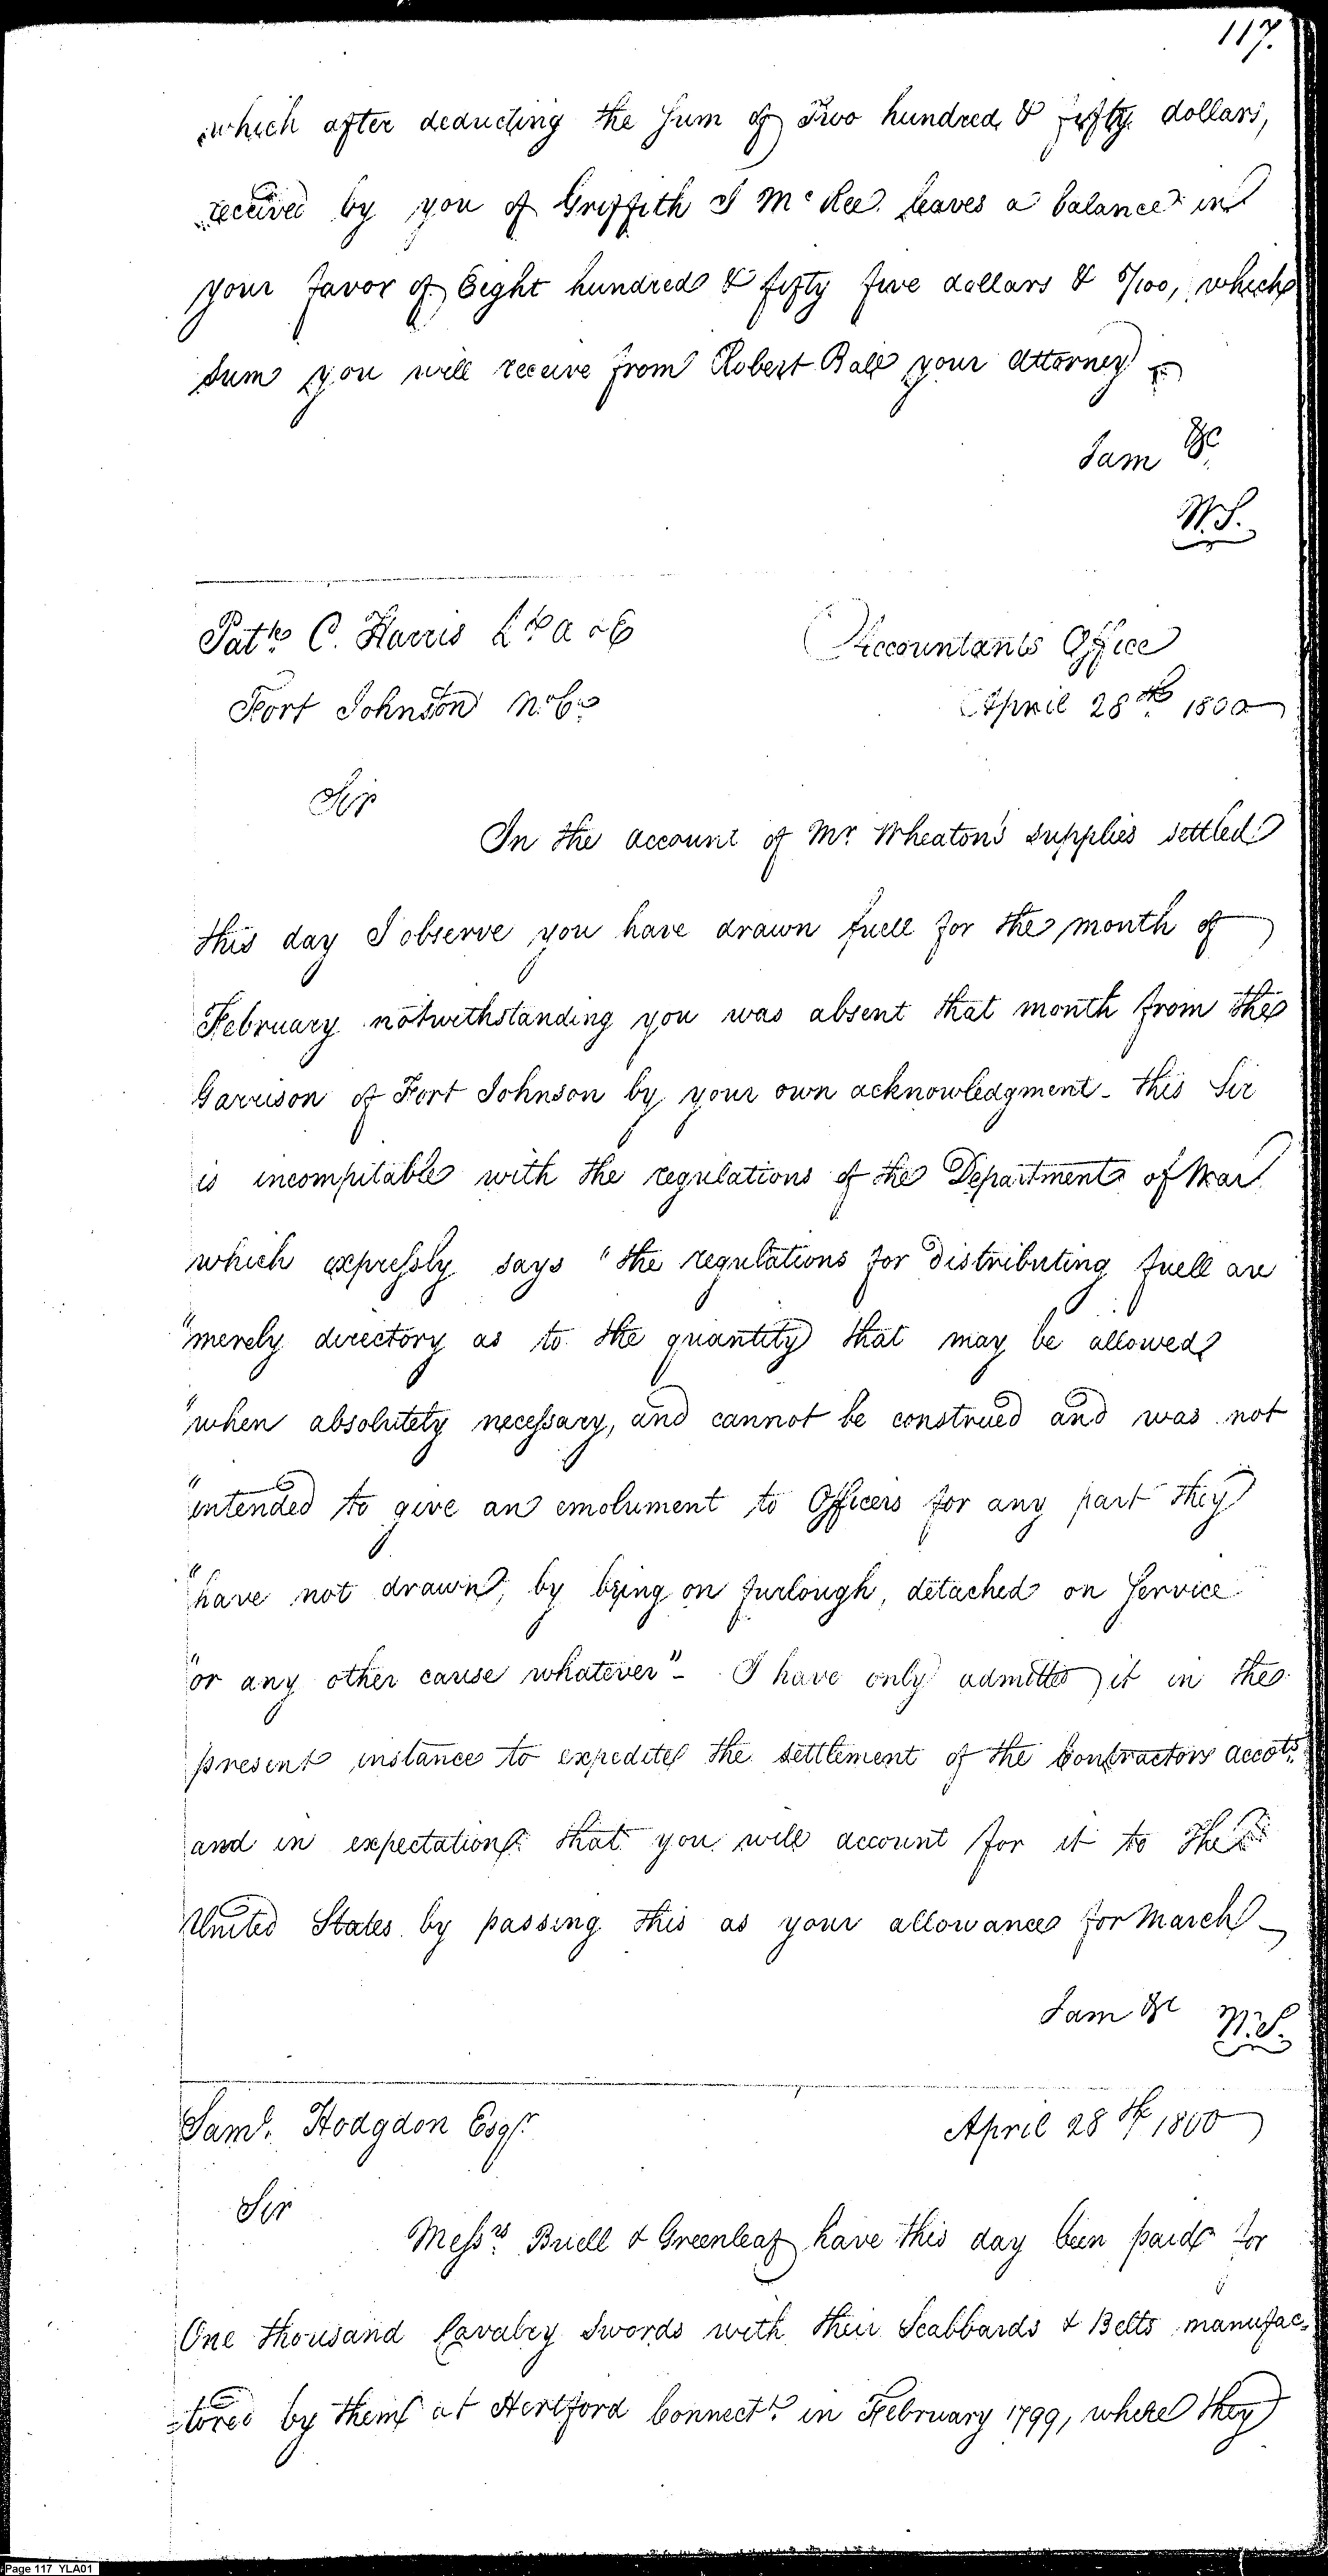 117.
which after deducting the Sum of Two hundred & fifty dollars,
received by you of Griffith J McRee leaves a balance in
your favor of Eight hundred & fifty five dollars & 5/100, which
sum you will receive from Robert Ball your Attorney
I am &c
W.S.
Patk. C. Harris Lt. A & E
Fort Johnston No. Ca.
Accountants Office
April 28th 1800
Sir
In the account of Mr. Wheaton's supplies settled
this day I observe you have drawn fuell for the month of
February notwithstanding you was absent that month from the
Garrison of Fort Johnson by your own acknowledgment - this Sir
is incompitable with the regulations of the Department of War
which expressly says "the regulations for distributing fuell are
"merely directory as to the quantity that may be allowed
"when absolutely necessary, and cannot be construed and was not
"intended to give an emolument to Officers for any part they
"have not drawn, by being on furlough, detached on Service
"or any other cause whatever" - I have only admitted it in the
present instance to expedite the settlement of the Contractors accots.
and in expectation that you will account for it to the
United States by passing this as your allowance for March -
I am &c
W.S.
Saml. Hodgdon Esqr.
April 28th 1800
Sir
Messrs. Buell & Greenleaf have this day been paid for
One thousand Cavalry Swords with their Scabbards & Belts manufac=
=tored by them at Hertford Connectt. in February 1799, where they
Page 117 YLA01